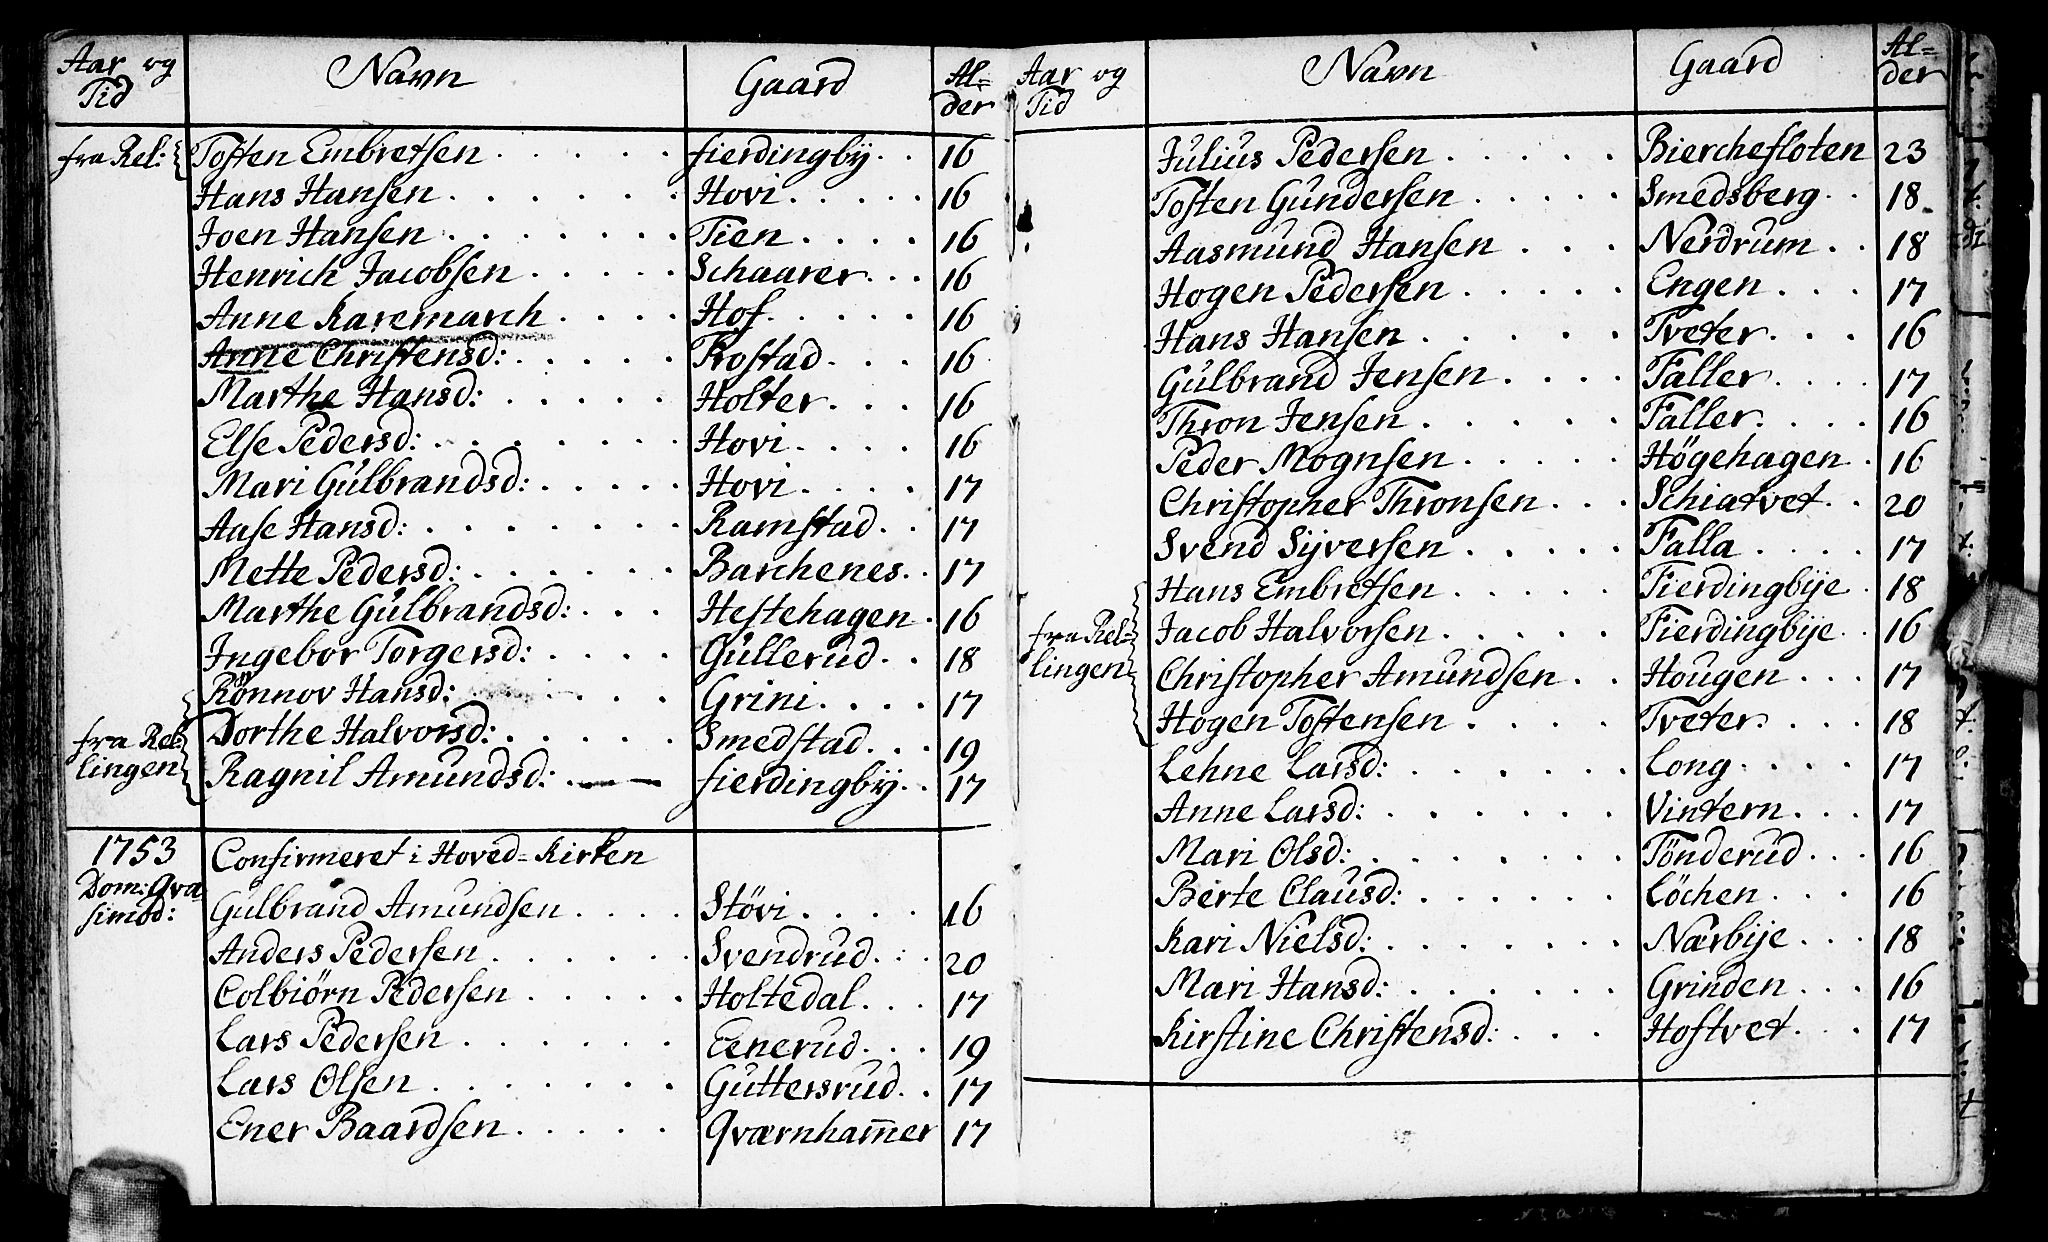 Aar og Tid Navn Gaard Al=der
fra Rel: Tosten Embretsen fierdingbÿ 16
Hans Hansen Hovi 16
Joen Hansen Tien 16
Henrich Jacobsen Schaarer 16
Anne Karemarch Hof 16
Anne Christensd: Rostad 16
Marthe Hansd: Holter 16
Else Pedersd: Hovi 16
Mari Gulbrandsd: Hovi 17
Aase Hansd: Ramstad 17
Mette Pedersd: Barchenes 17
Marthe Gulbrandsd: Hestehagen 16
Ingebor Torgersd: Gullerud 18
Rönnov Hansd: Grini 17
fra Rel: Dorthe Halvorsd: Smedstad 19
lingen Ragnil Amundsd: fierdingbÿ 17
1753 Confirmeret i Hoved=Kirken
Dom: Qva
simod: Gulbrand Amundsen Stövi 16
Anders Pedersen Svendrud 20
Colbiörn Pedersen Holtedal 17
Lars Pedersen Eenerud 19
Lars Olsen Guttersrud 17
Ener Baardsen Qværnham̄er 17
Aar og Tid Navn Gaard Al=der
Julius Pedersen Bierchefloten 23
Tosten Gundersen Smedsberg 18
Aasmund Hansen Nerdrum 18
Hogen Pedersen Engen 17
Hans Hansen Tveter 16
Gulbrand Jensen Faller 17
Thron Jensen Faller 16
Peder Mognsen Högehagen 16
Christopher Thronsen Schiatvet 20
Svend Sÿversen Falla 17
Hans Embretsen Fierdingbÿe 18
fra Rel= Jacob Halvorsen Fierdingbÿe 16
lingen Christopher Amundsen Hougen 17
Hogen Tostensen Tveter 18
Lehne Larsd: Long 17
Anne Larsd: Vintern 17
Mari Olsd: Tönderud 16
Berte Clausd: Löchen 16
Kari Nielsd: Nærbÿe 18
Mari Hansd: Grinden 16
Kirstine Christensd: Hoftvet 17